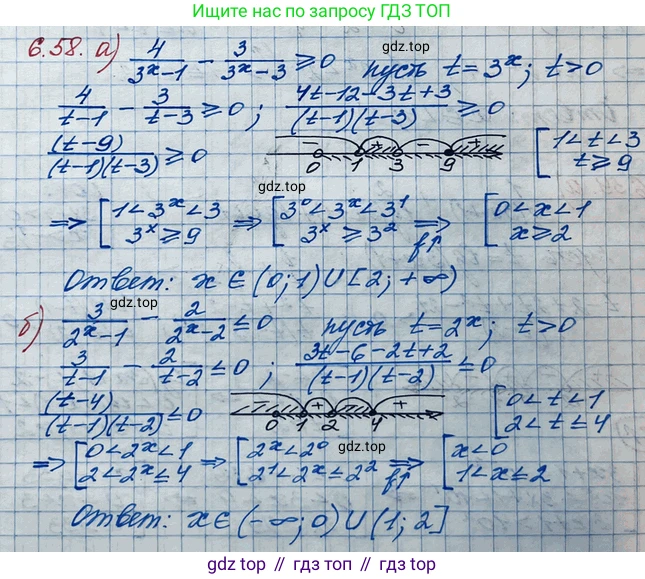 Ищите нас по запросу ГДЗ ТОП
6.58. а) 4/(3^x-1) - 3/(3^x-3) ≥ 0 пусть t=3^x; t>0
gdz.top
4/(t-1) - 3/(t-3) ≥ 0 ; (4t-12-3t+3)/((t-1)(t-3)) ≥ 0
(t-9)/((t-1)(t-3)) ≥ 0 - + - + 0 1 3 9 [1<t<3 t≥9
gdz.top
⇒ [1<3^x<3 3^x≥9 ⇒ [3^0<3^x<3^1 3^x≥3^2 ⇒ f↑ [0<x<1 x≥2
gdz.top
Ответ: x∈(0;1)∪[2;+∞)
gdz.top
б) 3/(2^x-1) - 2/(2^x-2) ≤ 0 пусть t=2^x; t>0
3/(t-1) - 2/(t-2) ≤ 0 ; (3t-6-2t+2)/((t-1)(t-2)) ≤ 0
gdz.top
(t-4)/((t-1)(t-2)) ≤ 0 - + - + 0 1 2 4 [0<t<1 2<t≤4
gdz.top
⇒ [0<2^x<1 2<2^x≤4 ⇒ [2^x<2^0 2^1<2^x≤2^2 ⇒ f↑ [x<0 1<x≤2
Ответ: x∈(-∞;0)∪(1;2]
gdz.top
gdz.top // gdz.top // gdz.top // gdz.top